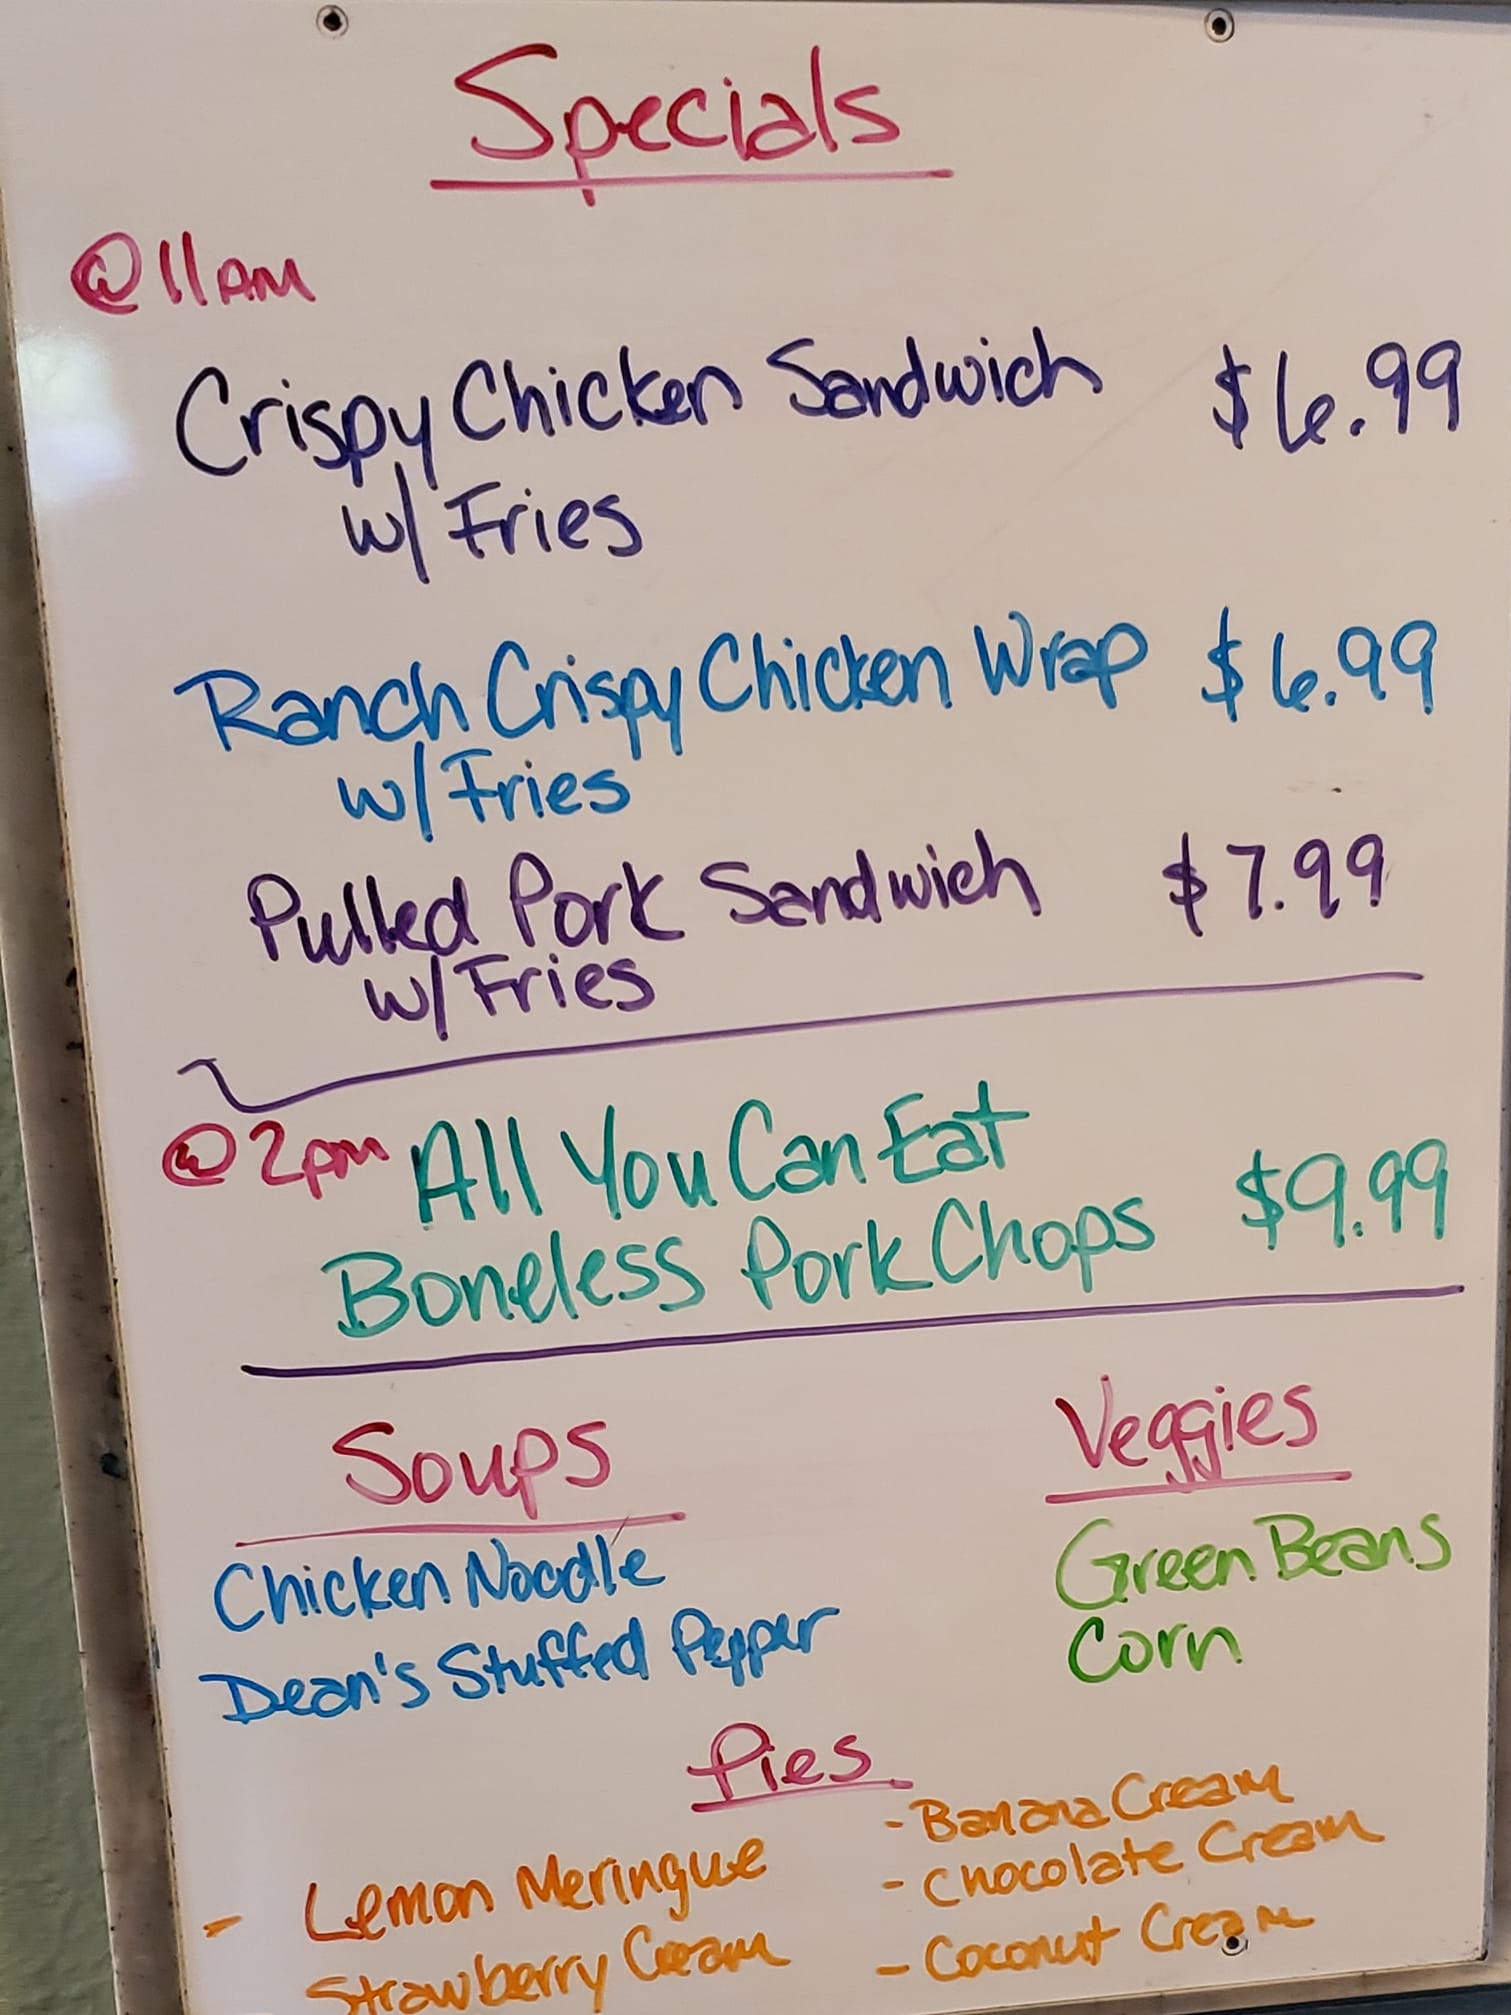 Specials
@11AM
Crispy Chicken Sandwich $6.99
w/ Fries
Ranch Crispy Chicken Wrap $6.99
w/ Fries
Pulled Pork Sandwich $7.99
w/ Fries
@2pm All You Can Eat
Boneless Pork Chops $9.99
Soups
Chicken Noodle
Dean's Stuffed Pepper
Veggies
Green Beans
Corn
Pies
- Lemon Meringue
Strawberry Cream
- Banana Cream
- Chocolate Cream
- Coconut Cream